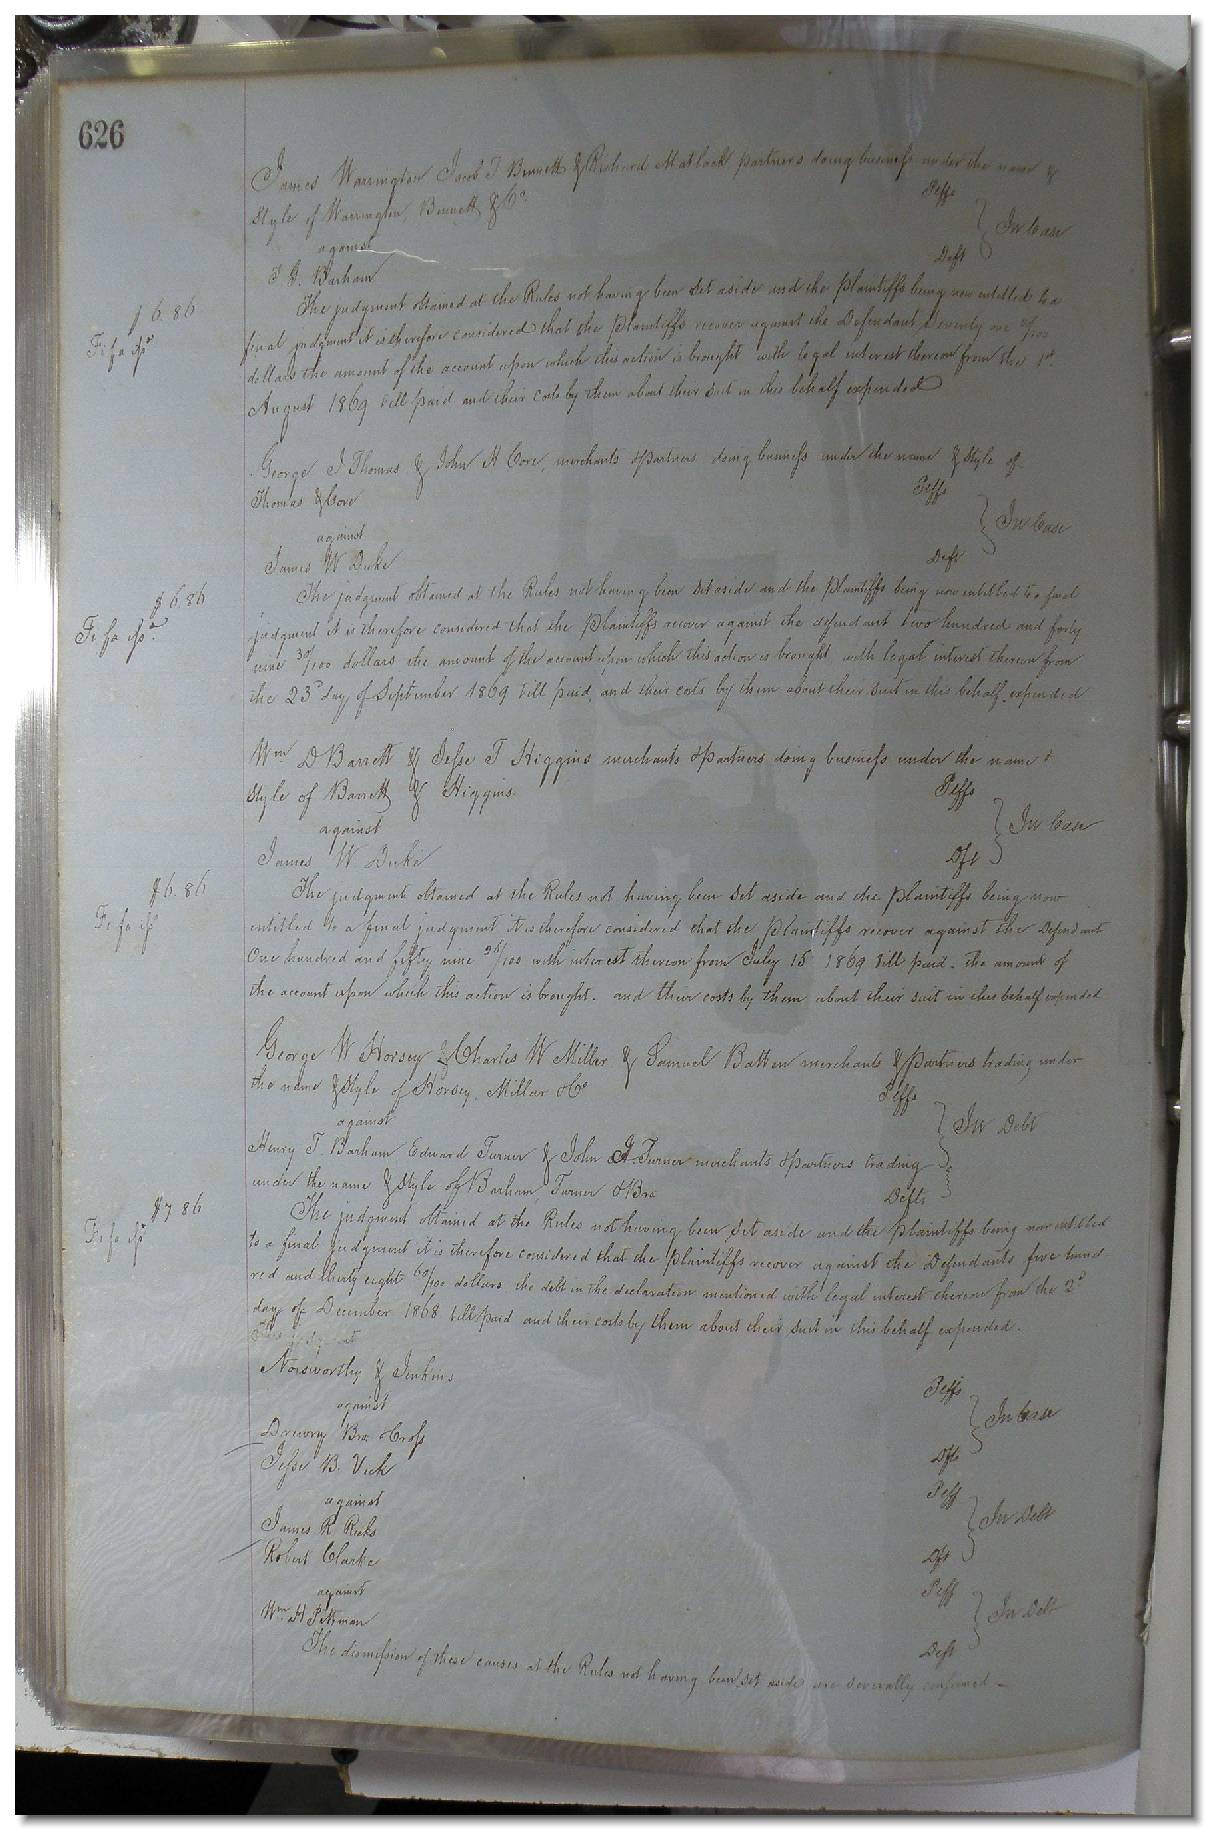 626
James Warrington Jacob T Bennett & Richard Matlack, partners doing business under the name &
Style of Warrington, Bennett & Co. Peffs
against In Case
T. J. Barham Deft
$6.86
The judgment obtained at the Rules not having been set aside and the plaintiffs being now intitled to a
Fi fa
final judgment it is therefore considered that the plaintiffs recover against the Defendant Seventy one /100
dollars the amount of the account upon which this action is brought with legal interest thereon from the 1st
August 1869 till paid and their costs by them about their suit in this behalf expended
George J Thomas & John H Core, merchants & partners doing business under the name & Style of
Thomas & Core Peffs
against In Case
James W Duke Deft
$6.86
The judgment obtained at the Rules not having been set aside and the plaintiffs being now intitled to a final
Fi fa
judgment it is therefore considered that the plaintiffs recover against the defendant two hundred and forty
nine 30/100 dollars the amount of the account upon which this action is brought, with legal interest thereon from
the 23d day of September 1869 till paid, and their costs by them about their suit in this behalf expended
Wm D Barrett & Jesse T Higgins merchants & partners doing business under the name &
Style of Barrett & Higgins Peffs
against In Case
James W Duke Dft
$6.86
The judgment obtained at the Rules not having been set aside and the plaintiffs being now
Fi fa
entitled to a final judgment it is therefore considered that the plaintiffs recover against the Defendant
One hundred and fifty nine /100 with interest thereon from July 15 1869 till paid. the amount of
the account upon which this action is brought. and their costs by them about their suit in this behalf expended
George W Horsey & Charles W Miller & Samuel Batten merchants & partners trading under
the name & Style of Horsey, Millar & Co Peffs
against In Debt
Henry T. Barham Edward Turner & John Turner merchants & partners trading
under the name & Style of Barham, Turner & Bro Defts
$7.86
The judgment obtained at the Rules not having been set aside and the plaintiffs being now intitled
Fi fa
to a final judgment it is therefore considered that the plaintiffs recover against the Defendants five hund
red and thirty eight 60/100 dollars the debt in the declaration mentioned with legal interest thereon from the 2d
day of December 1868 till paid and their costs by them about their suit in this behalf expended.
Norsworthy & Jenkins Peffs
against In Case
Drewry Bro & Cross Dfts
Jesse B. Vick Peff
against In Debt
James R Ricks Dft
Robert Clarke Peff
against In Debt
Wm H Pittman Deft
The dismission of these causes at the Rules not having been set aside are severally confirmed -